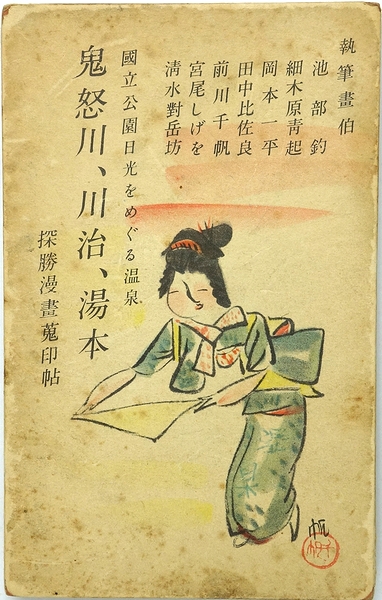 執筆畫伯
池部釣
細木原青起
岡本一平
田中比佐良
前川千帆
宮尾しげを
清水對岳坊
國立公園日光をめぐる温泉
鬼怒川、川治、湯本
探勝漫畫蒐印帖
帆